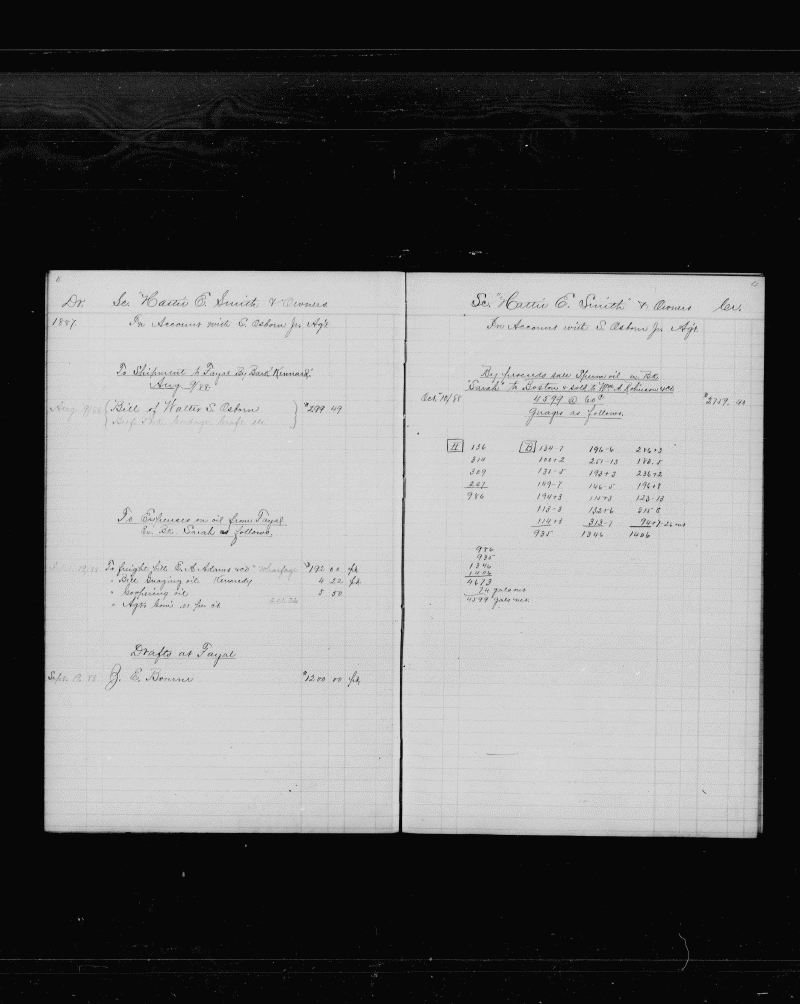 6
Dr. Sc. "Hattie E. Smith" & Owners
1887 In Account with S. Osborn Jr. Agt.
To Shipment to Fayal By Bark "Kennard"
Aug. 9/88
Aug. 9/88 Bill of Walter S. Osborn $299 49
To Expenses on oil from Fayal
Ex. Bk. Sarah as follows.
To freight bill E. A. Adams & Co. Wharfage $192 00 pd.
" Bill Guaging oil Kennedy 4 22 pd.
" Coopering oil 5 50
" Agts Com. as per ct.
Drafts at Fayal
Sept. 13 88 J. E. Bourne $1200 00 pd.
6
Sc. "Hattie E. Smith" & Owners Cr.
In Account with S. Osborn Jr. Agt.
By proceeds sale Sperm oil on Bk.
"Sarah" to Boston & sold to Wm. A. Robinson & Co.
Oct. 10/88 4599 @ 60 cts $2759. 40
Guage as follows.
H 136 B 134-7 196-6 286+3
314 100+2 251-13 180.5
309 131-5 193+3 236+2
227 149-7 146-5 196+8
986 194+3 115+3 123-13
113-3 132+6 215 8
114+3 313-7 94+7
935 1346 1406
986
935
1346
1406
4673
74 gals out
4599 gals net.